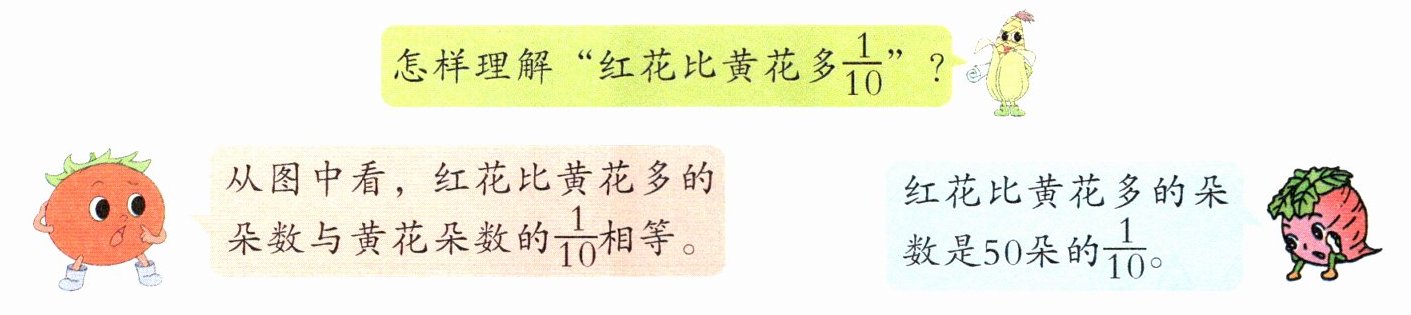 怎样理解“红花比黄花多1/10”？
从图中看，红花比黄花多的
朵数与黄花朵数的1/10相等。
红花比黄花多的朵
数是50朵的1/10。